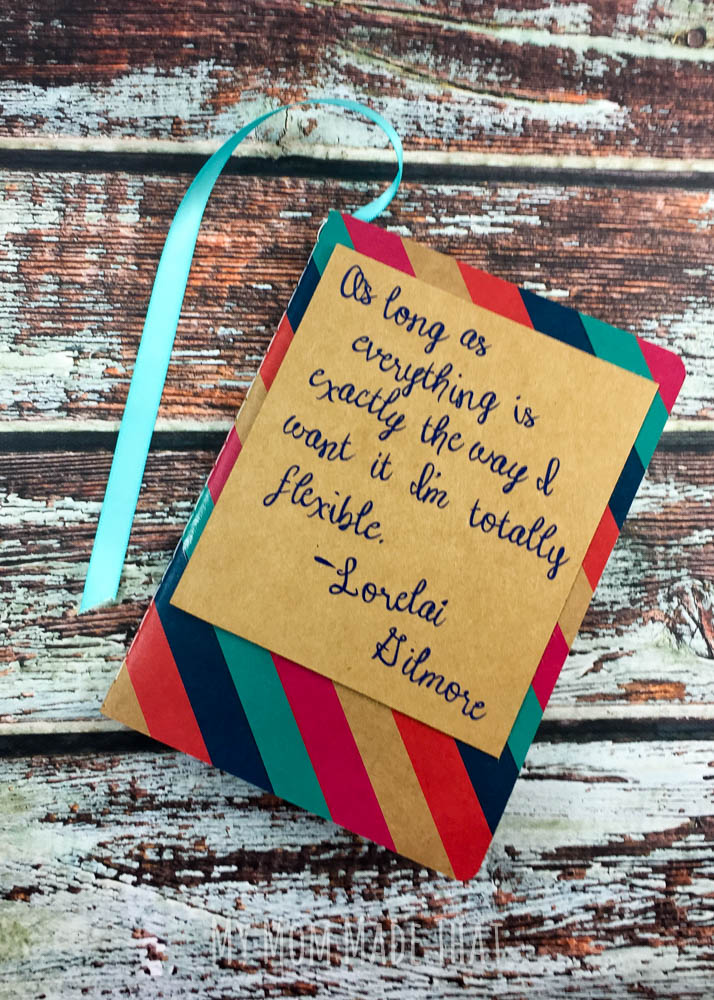 As long as
everything is
exactly the way I
want it I'm totally
flexible.
-Lorelai
Gilmore
MY MUM MADE THAT